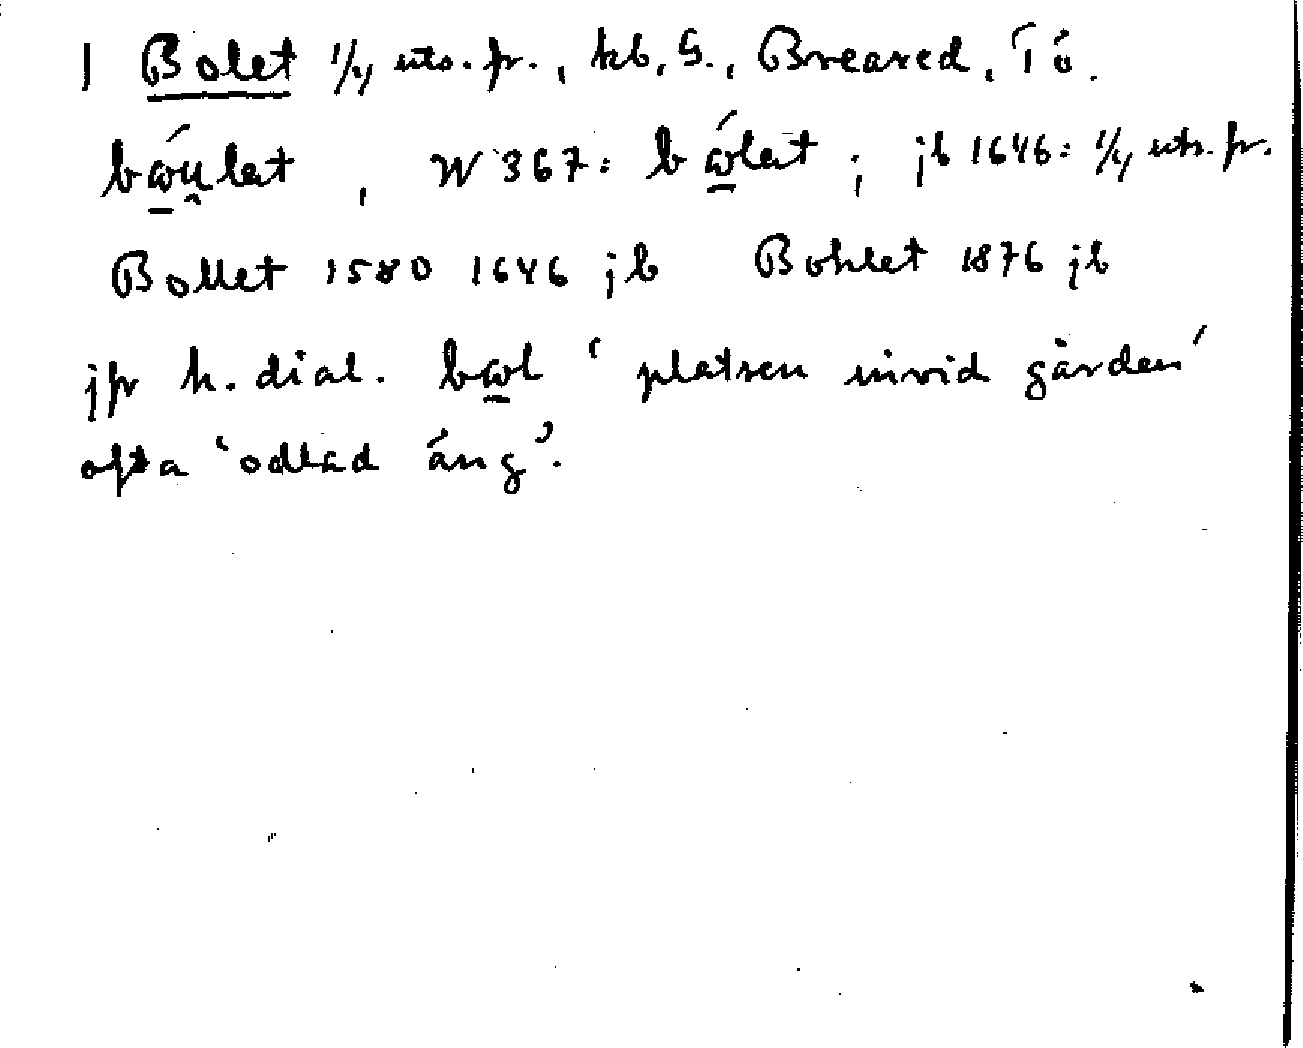 1 Bolet 1/4 uts. fr., kb. G., Breared, Tö.
bώ̲u̯let, W 367: bώ̲let; jb 1646: 1/4 uts. fr.
Bollet 1580 1646 jb Bohlet 1876 jb
jfr h. dial. bω̲l ‘platsen invid gården’
ofta ‘odlad äng’.